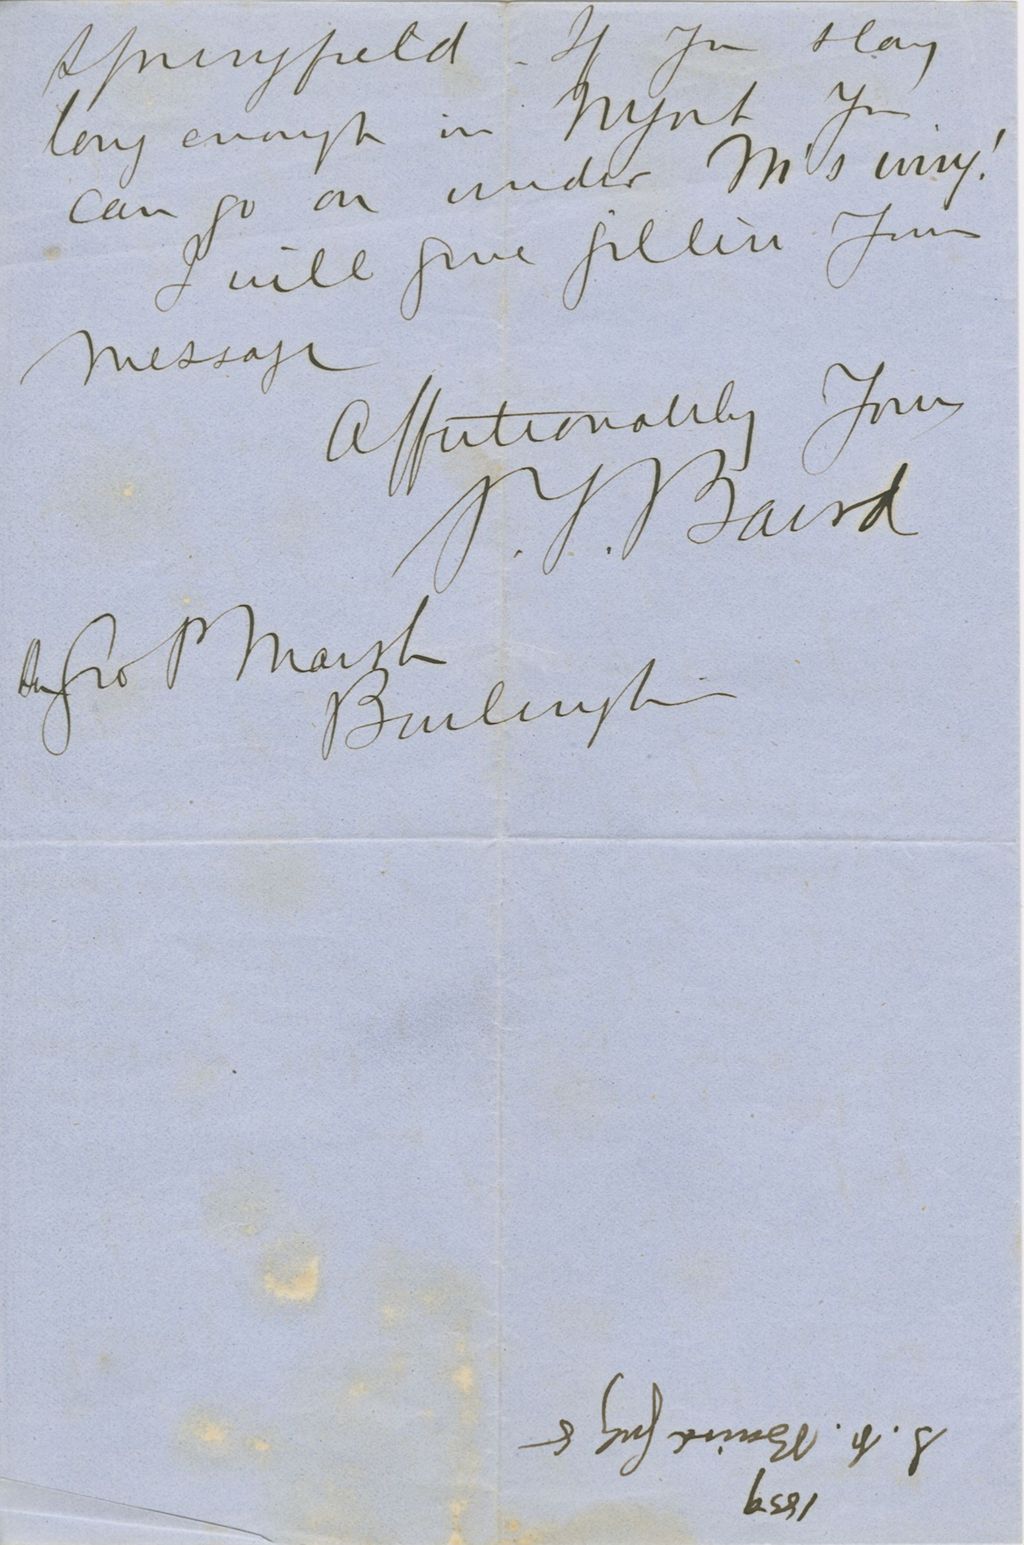 Springfield. If you stay
long enough in NYork you
can go on under M's wing!
I will give Gillis your
message
Affectionately Yours
S. F. Baird
Hon Geo P Marsh
Burlington
S. F. Baird July 5
1859